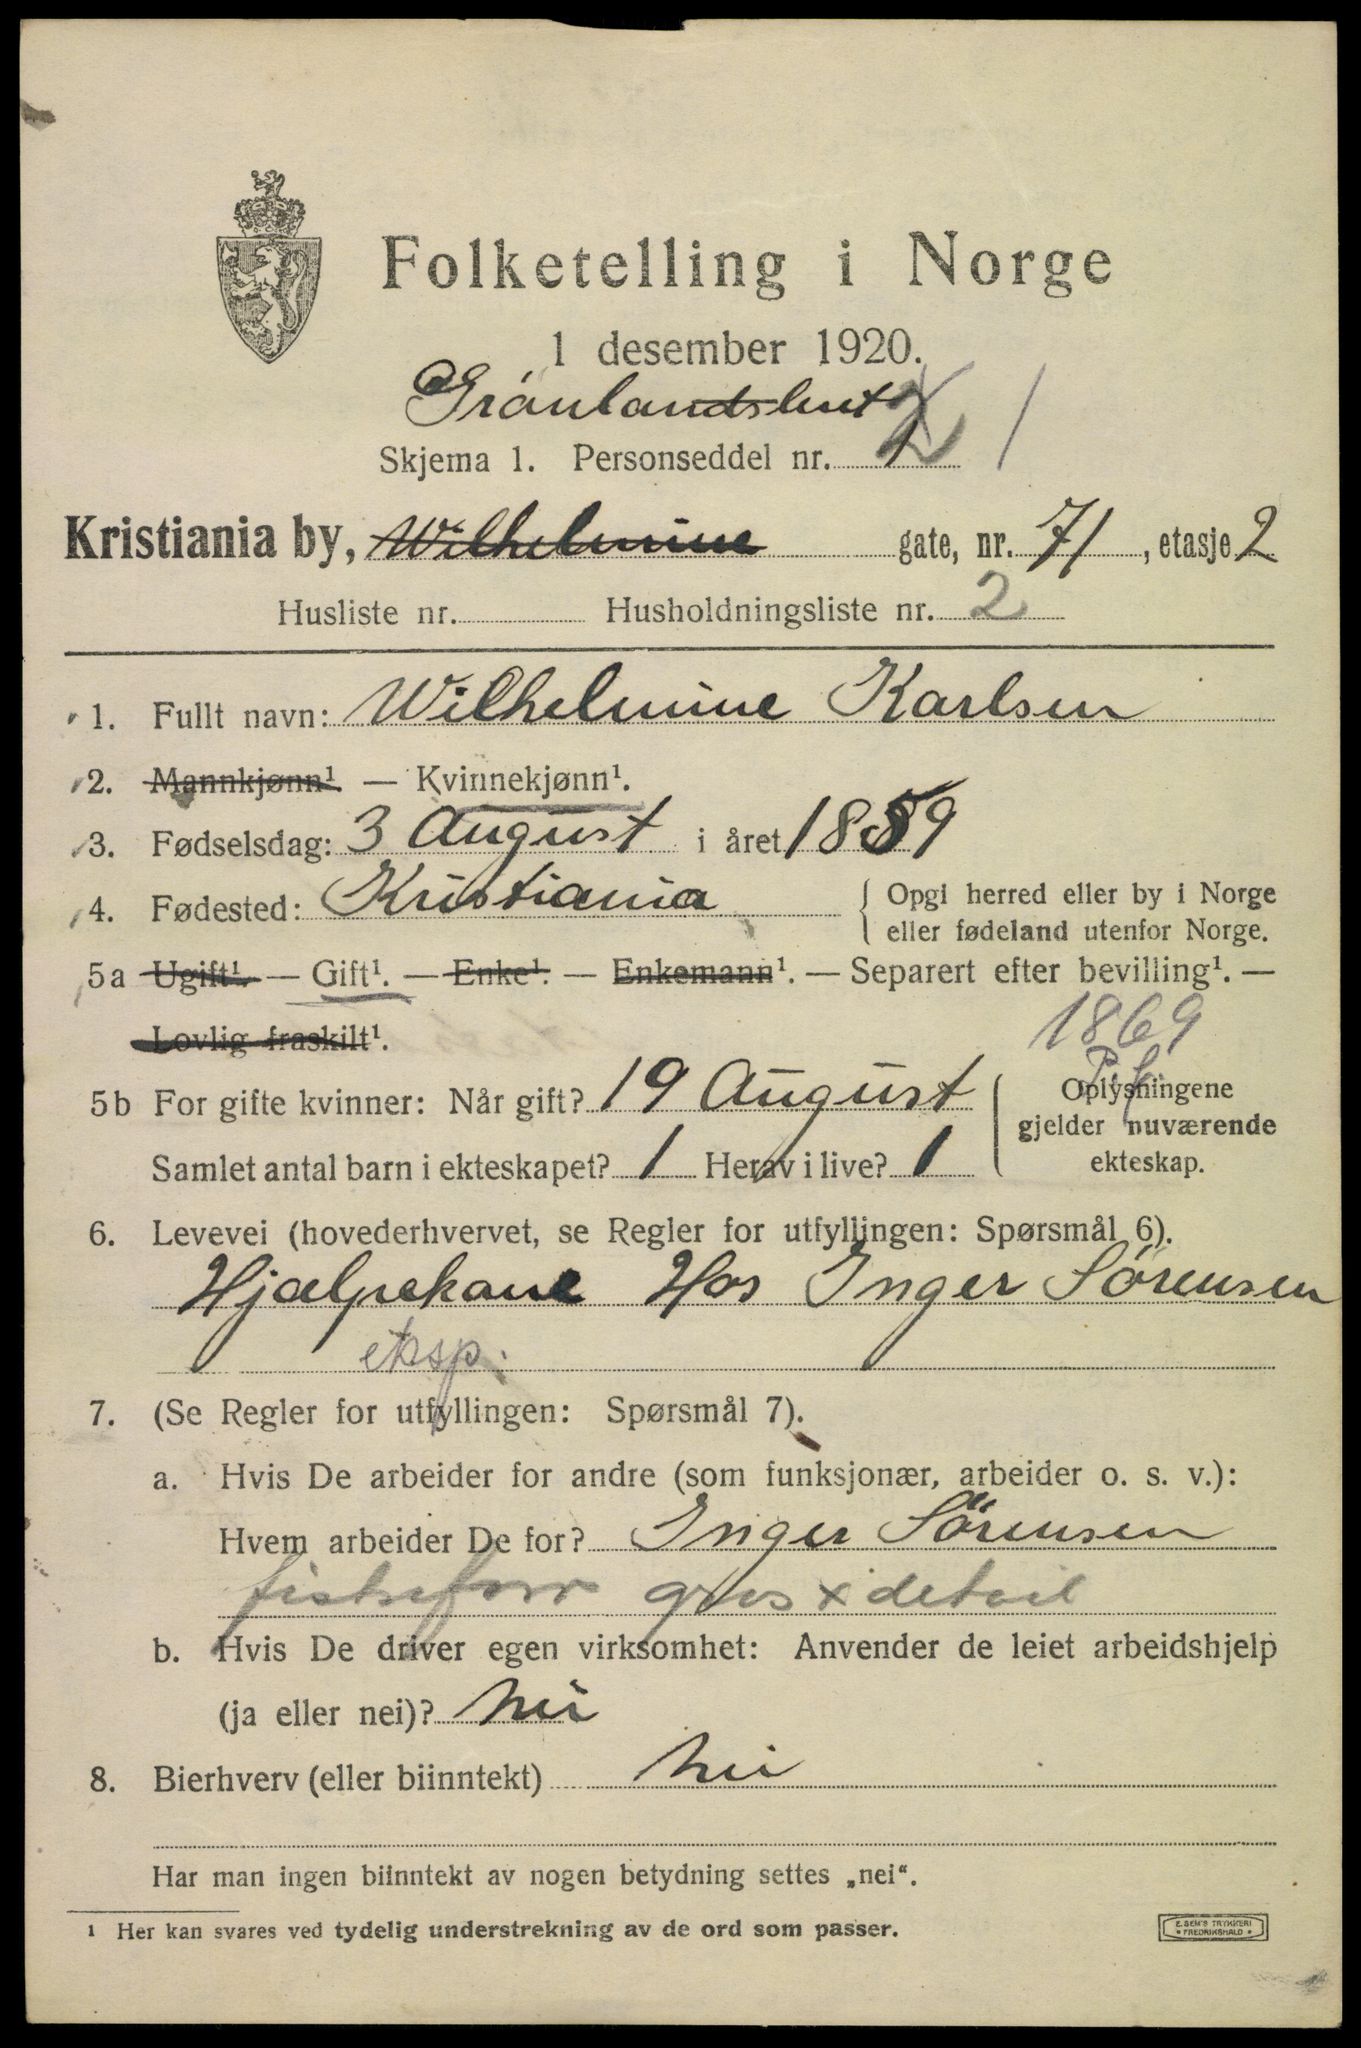 Folketelling i Norge
1 desember 1920.
Grönlandsleret
Skjema 1. Personseddel nr. 1
Kristiania by, Wilhelmine gate, nr. 71, etasje 2
Husliste nr. Husholdningsliste nr. 2
1. Fullt navn: Wilhelmine Karlsen
2. Mannkjønn¹. — Kvinnekjønn¹.
3. Fødselsdag: 3 August i året 1859
4. Fødested: Kristiania { Opgi herred eller by i Norge
eller fødeland utenfor Norge.
5a Ugift¹. — Gift¹. — Enke¹. — Enkemann¹. — Separert efter bevilling¹. —
Lovlig fraskilt¹.
1869
5b For gifte kvinner: Når gift? 19 August { Oplysningene
gjelder nuværende
ekteskap.
Samlet antal barn i ekteskapet? 1 Herav i live? 1
6. Levevei (hovederhvervet, se Regler for utfyllingen: Spørsmål 6).
Hjælpekone Hos Inger Sörensen
eksp.
7. (Se Regler for utfyllingen: Spørsmål 7).
a. Hvis De arbeider for andre (som funksjonær, arbeider o. s. v.):
Hvem arbeider De for? Inger Sörensen
fiskeforr gros x detail
b. Hvis De driver egen virksomhet: Anvender de leiet arbeidshjelp
(ja eller nei)? nei
8. Bierhverv (eller biinntekt) nei
Har man ingen biinntekt av nogen betydning settes „nei“.
¹ Her kan svares ved tydelig understrekning av de ord som passer.
E. SEM'S TRYKKERI
* FREDRIKSHALD *